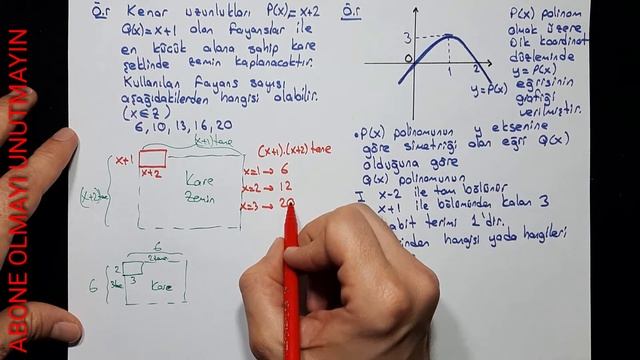 ABONE OLMAYI UNUTMAYIN
Ör Kenar uzunlukları P(x)=x+2
Q(x)=x+1 olan fayanslar ile
en küçük alana sahip kare
şeklinde zemin kaplanacaktır.
Kullanılan fayans sayısı
aşağıdakilerden hangisi olabilir.
(x∈Z)
6, 10, 13, 16, 20
(x+1)tane
x+1
x+2
(x+2)tane
Kare
zemin
(x+1).(x+2)tane
x=1 → 6
x=2 → 12
x=3 → 20
6
2tane
2
3
6
3tane
Kare
Ör
3
0
1
2
y=P(x)
P(x) polinom
olmak üzere
Dik koordinat
düzleminde
y=P(x)
eğrisinin
grafiği
verilmiştir.
P(x) polinomunun y eksenine
göre simetriği olan eğri Q(x)
olduğuna göre
Q(x) polinomunun
I x-2 ile tam bölünür
x+1 ile bölümünden kalan 3
terimi 1'dir.
hangisi yada hangileri